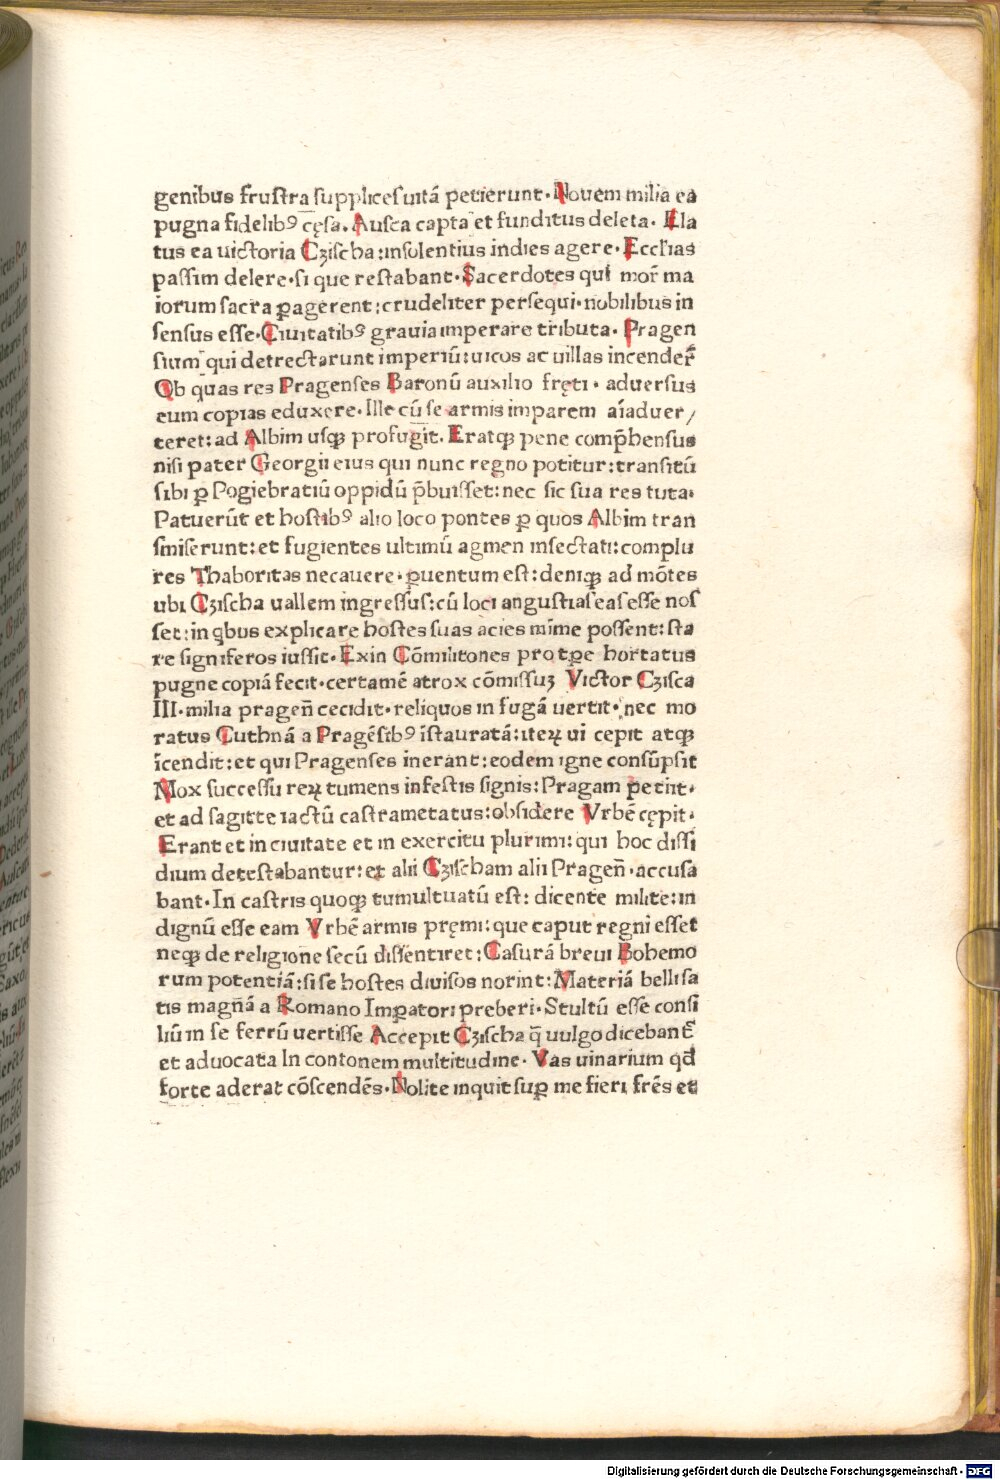 genibus frustra supplices uitā petierunt. Nouem milia ea
pugna fidelibꝰ cęsa. Ausca capta et funditus deleta. Ela
tus ea uictoria Cziſcha: insolentius indies agere. Ecclias
passim delere. si que restabant. Sacerdotes qui mor̄ ma
iorum sacra ꝑagerent: crudeliter persequi. nobilibus in
sensus esse. Ciuitatibꝰ grauia imperare tributa. Pragen
sium qui detrectarunt imperiū: uicos ac uillas incender̄
Ob quas res Pragenses Baronū auxilio fręti. aduersus
eum copias eduxere. Ille cū se armis imparem aīaduer/
teret: ad Albim usqꝫ profugit. Eratqꝫ pene comp̄hensus
nisi pater Georgii eius qui nunc regno potitur: transitū
sibi ꝑ Pogiebratiū oppidū p̄buisset: nec sic sua res tuta.
Patuerūt et hostibꝰ alio loco pontes ꝑ quos Albim tran
smiserunt: et fugientes ultimū agmen insectati: complu
res Thaboritas necauere. ꝑuentum est: deniqꝫ ad mōtes
ubi Cziſcha uallem ingressus: cū loci angustias eas esse nos
set: in qbus explicare hostes suas acies mīme possent: sta
re signiferos iussit. Exin Cōmilitones pro tꝑe hortatus
pugne copiā fecit. certamē atrox cōmissuꝫ Victor Czisca
III. milia pragen̄ cecidit. reliquos in fugā uertit. nec mo
ratus Cuthnā a Pragēsibꝰ īstauratā: iteꝝ ui cepit atqꝫ
īcendit: et qui Pragenses inerant: eodem igne consūpsit
Mox successu reꝝ tumens infestis signis: Pragam petiit.
et ad sagitte iactū castrametatus: obsidere Vrbē cępit.
Erant et in ciuitate et in exercitu plurimi: qui hoc dissi
dium detestabantur: et alii Cziſcham alii Pragen̄. accusa
bant. In castris quoqꝫ tumultuatū est: dicente milite: in
dignū esse eam Vrbē armis pręmi: que caput regni esset
neqꝫ de religione secū dissentiret: Casurā breui Bohemo
rum potentiā: si se hostes diuisos norint: Materiā belli sa
tis magn̄ā a Romano Imꝑatori preberi. Stultū esse consi
liū in se ferrū uertisse Accepit Cziſcha q̄ uulgo dicebant̄
et aduocata In contonem multitudine. Vas uinarium qđ
forte aderat cōscendēs. Nolite inquit suꝑ me fieri frēs et
Digitalisierung gefördert durch die Deutsche Forschungsgemeinschaft - DFG